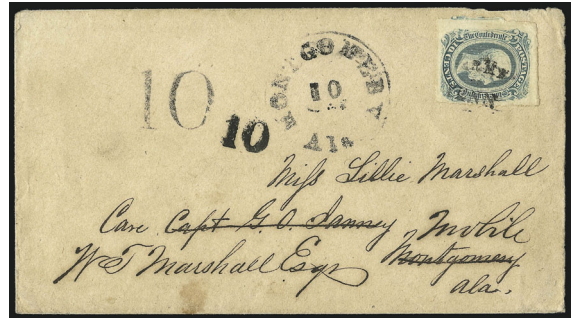 MONTGOMERY
10
Ala
10
10
Miss Lillie Marshall
Care Capt G. O. Janney Mobile
W T Marshall Esqr Montgomery
ala.